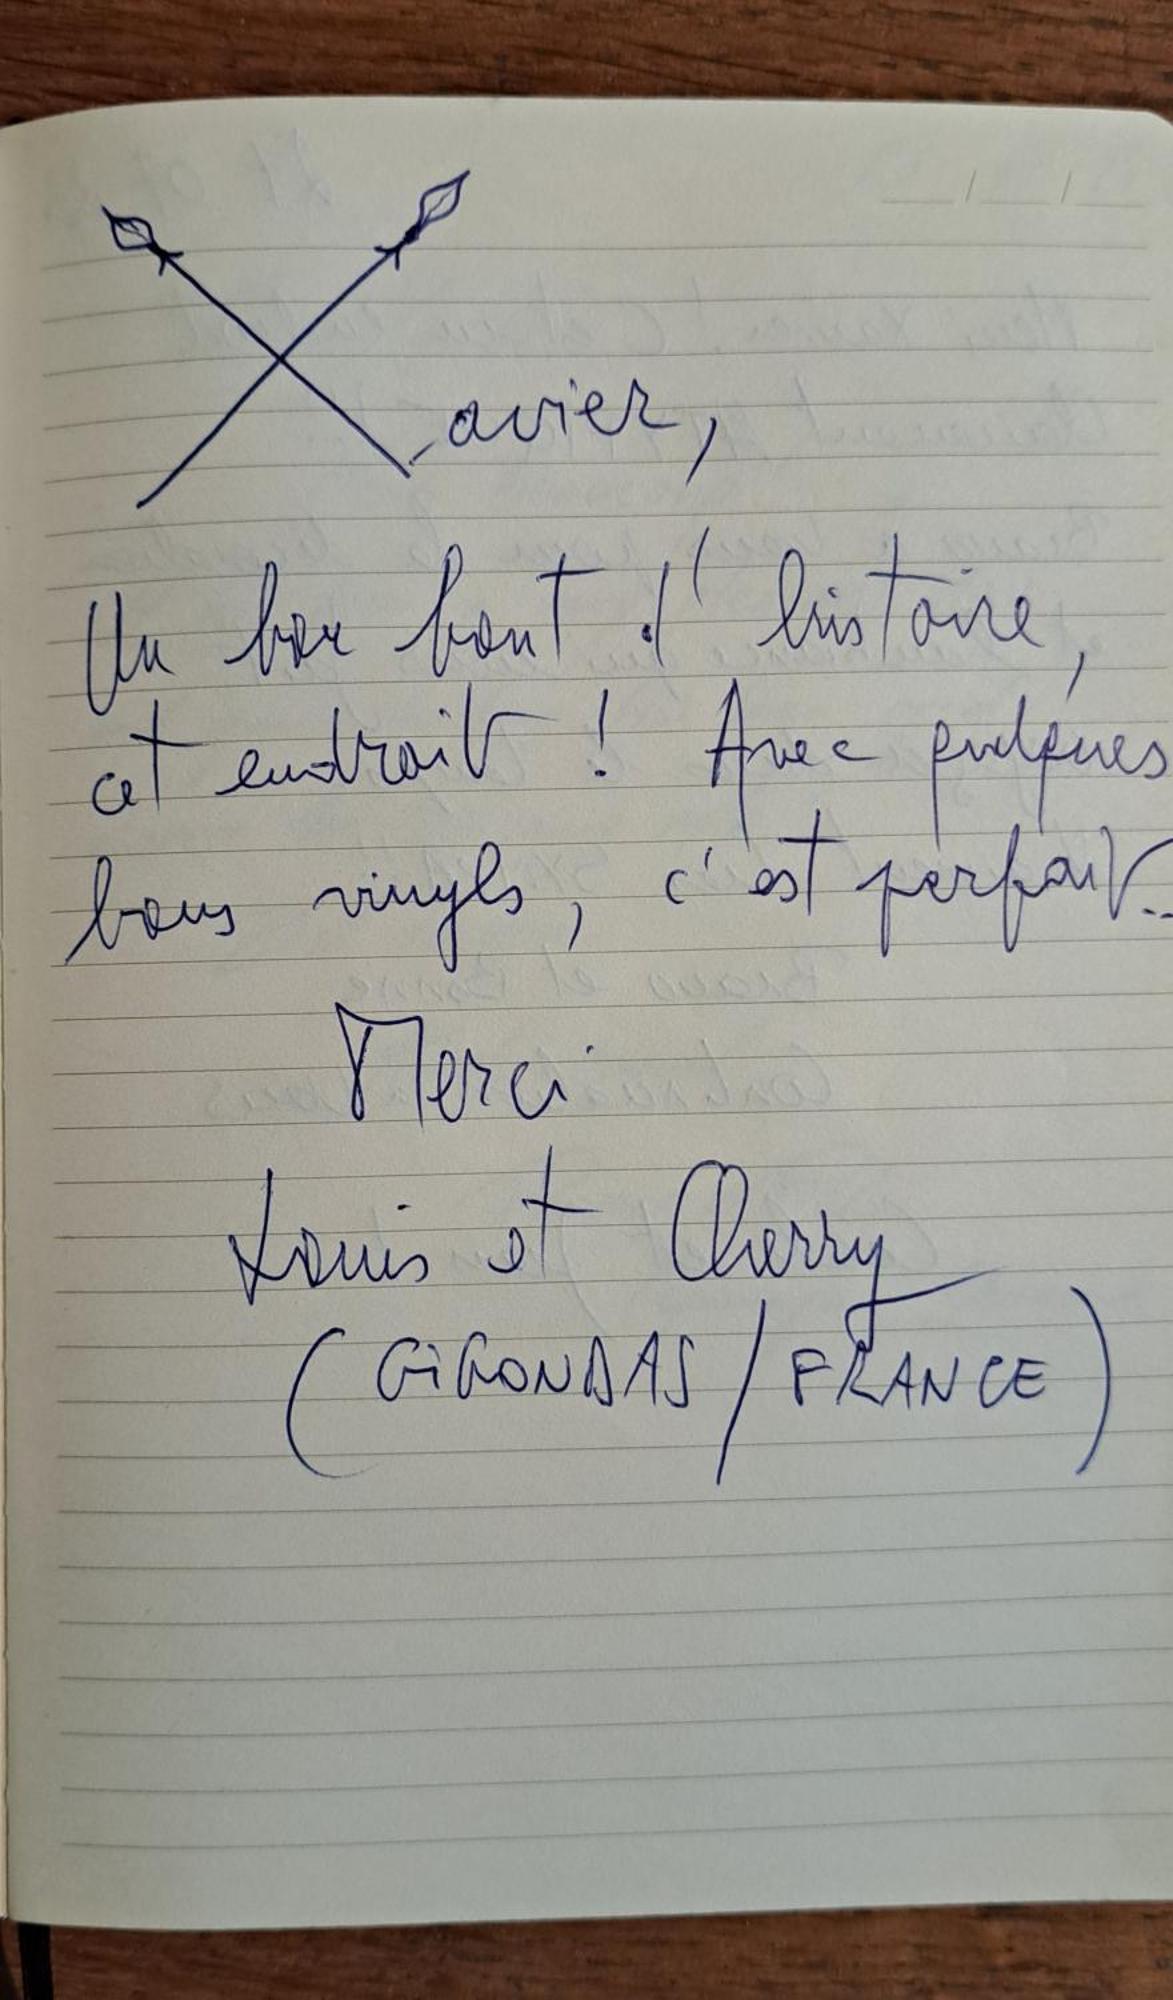 Xavier,
Un bon bout d'histoire,
cet endroit ! Avec quelques
bons vinyls, c'est parfait..
Merci
Louis et Cherry
(GIGONDAS / FRANCE)